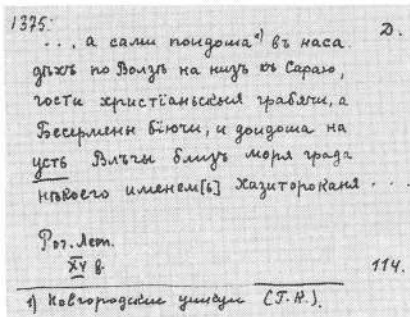 1375.
Д.
..., а сами поидоша¹⁾ въ наса
дѣхъ по Волзѣ на низъ къ Сараю,
гости христїаньскыя грабячи, а
Бесермены бїючи, и доидоша на
усть Влъгы близъ моря града
нѣкоего именем[ь] Хазитороканя ...
Рог. Лет.
XV в.
114.
1) Новгородские ушкуи (Г.К.).